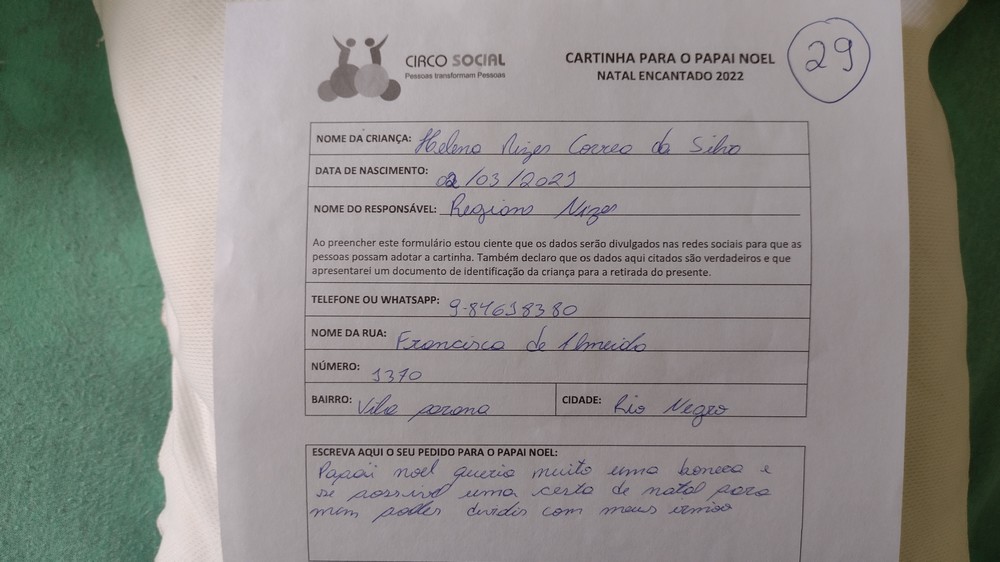 CIRCO SOCIAL
Pessoas transformam Pessoas
CARTINHA PARA O PAPAI NOEL
NATAL ENCANTADO 2022
29
NOME DA CRIANÇA: Helena Nizer Correa da Silva
DATA DE NASCIMENTO: 02/03/2021
NOME DO RESPONSÁVEL: Regiane Nizer
Ao preencher este formulário estou ciente que os dados serão divulgados nas redes sociais para que as
pessoas possam adotar a cartinha. Também declaro que os dados aqui citados são verdadeiros e que
apresentarei um documento de identificação da criança para a retirada do presente.
TELEFONE OU WHATSAPP: 9-84618380
NOME DA RUA: Francisco de Almeida
NÚMERO: 1370
BAIRRO: Vila parana CIDADE: Rio Negro
ESCREVA AQUI O SEU PEDIDO PARA O PAPAI NOEL:
Papai noel queria muito uma boneca e
se possivel uma cesta de natal para
mim poder dividir com meus irmão